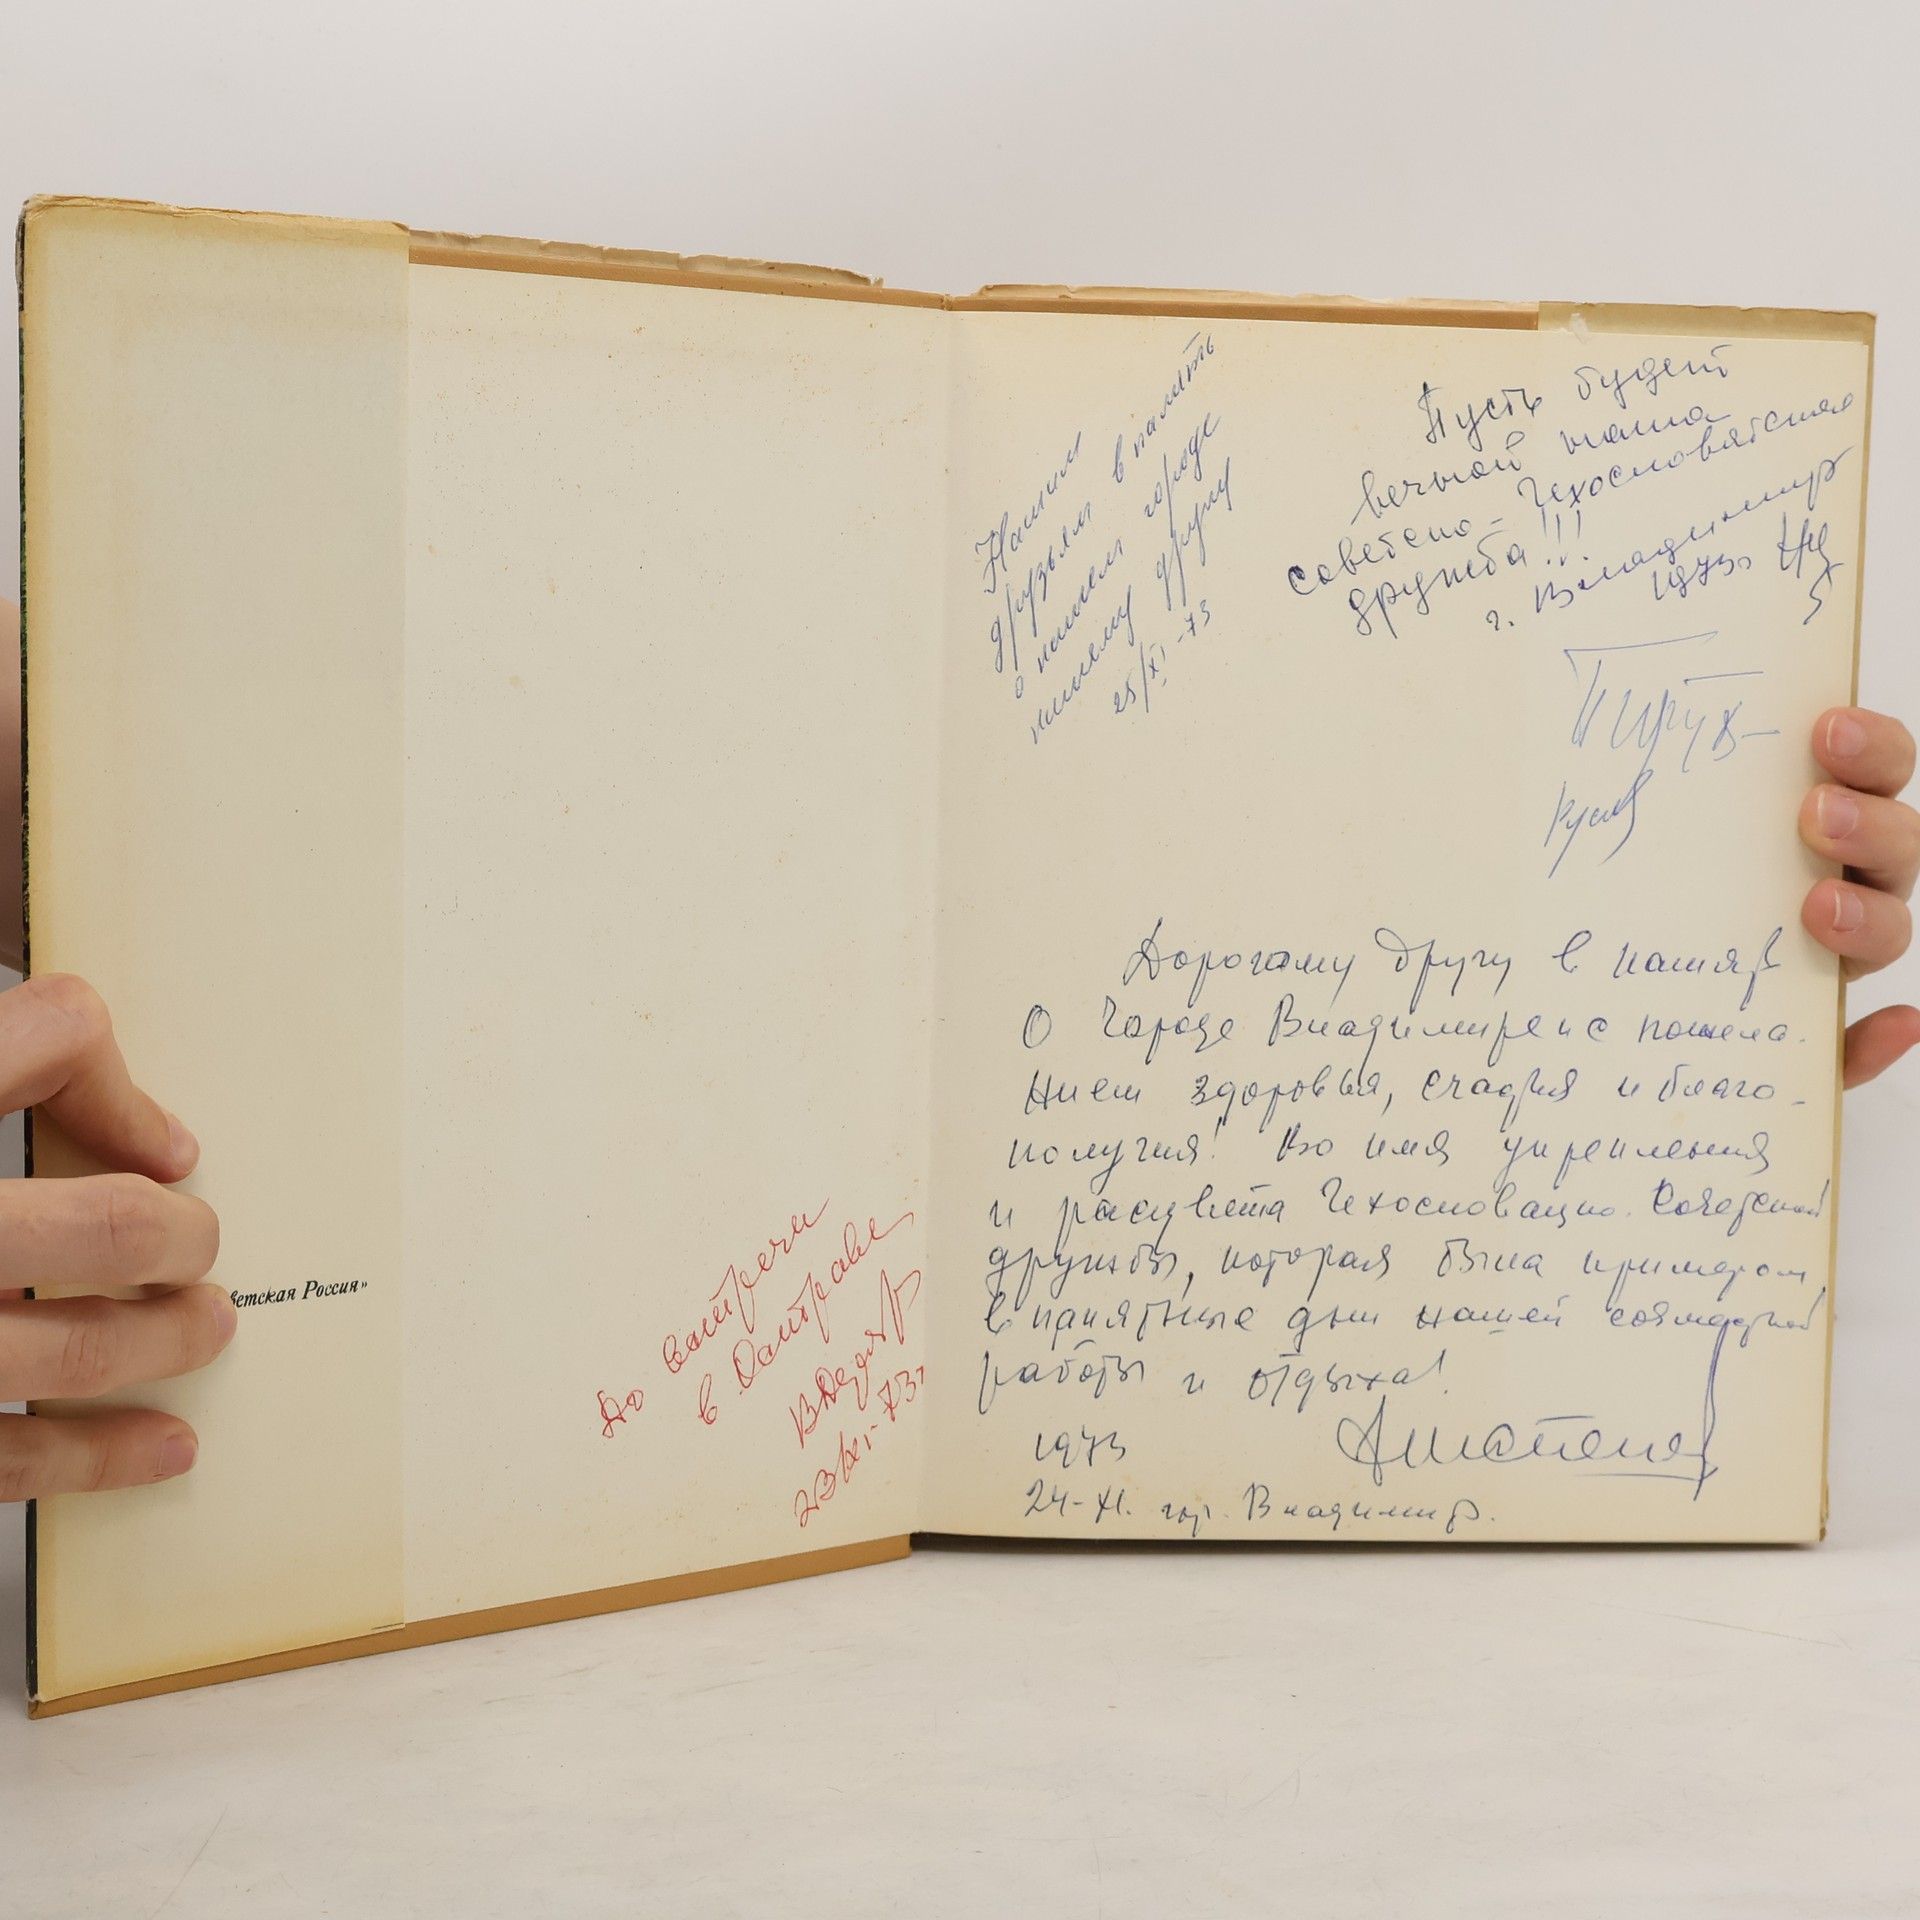 ветская Россия»
До встречи
в Остраве
23/XI-73г
Нашим
друзьям в память
о нашем городе
нашему другу
25/XI-73
Пусть будет
вечной наша
советско-Чехословатская
дружба!!!
г. Владимир
1973г.
Дорогому другу в память
О Городе Владимире и с пожела-
нием здоровья, счастья и благо-
получия! Во имя укрепления
и расцвета Чехословацко-Советской
дружбы, которая была примером
в памятные дни нашей совместной
работы и отдыха!
1973
24-XI. гор. Владимир.